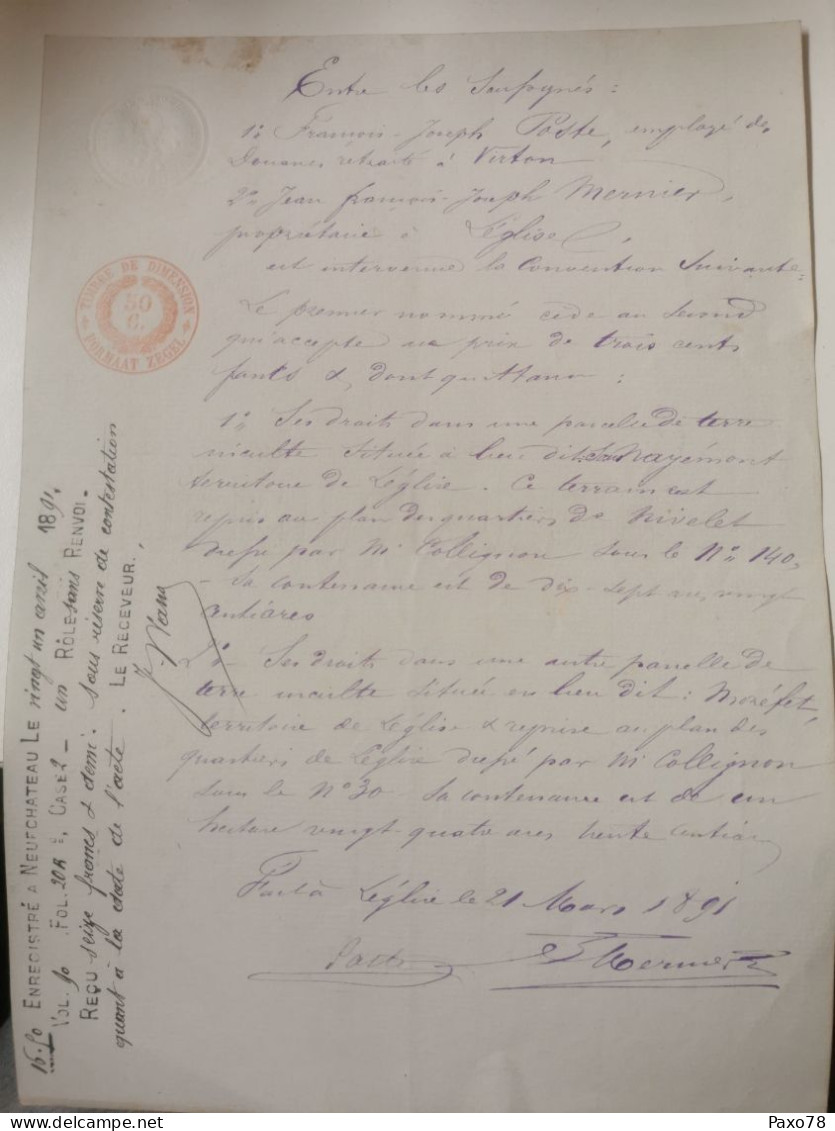 Entre les Soussignés :
1º François-Joseph Poste, employé de
Douanes retraité à Virton
2º Jean françois-Joseph Mernier,
propriétaire à Léglise,
est intervenue la Convention Suivante
Le premier nommé cède au Second
qui accepte au prix de trois cents
francs &, dont quittance :
1º Ses droits dans une parcelle de terre
inculte située à lieu dit
territoire de Léglise. Ce terrain est
repris au plan des quartiers de Nivelet
dressé par Mr Collignon sous le Nº 140,
Sa contenance est de dix-sept ares vingt
centiares
2º Ses droits dans une autre parcelle de
terre inculte située en lieu dit :
territoire de Léglise & reprise au plan des
quartiers de Léglise dressé par Mr Collignon
sous le Nº 30 Sa contenance est de un
hectare vingt-quatre ares trente centiares
Fait à Léglise le 21 Mars 1891
Poste Mernier
TIMBRE DE DIMENSION
50
C.
FORMAAT ZEGEL
16.50 ENREGISTRÉ A NEUFCHATEAU LE vingt un avril 1891,
VOL. 90 FOL. 20 Rº, CASE 2 - un RÔLE sans RENVOI.
REÇU seize francs & demi. sous réserve de contestation
quant à la date de l'acte. LE RECEVEUR.,
Paxo78